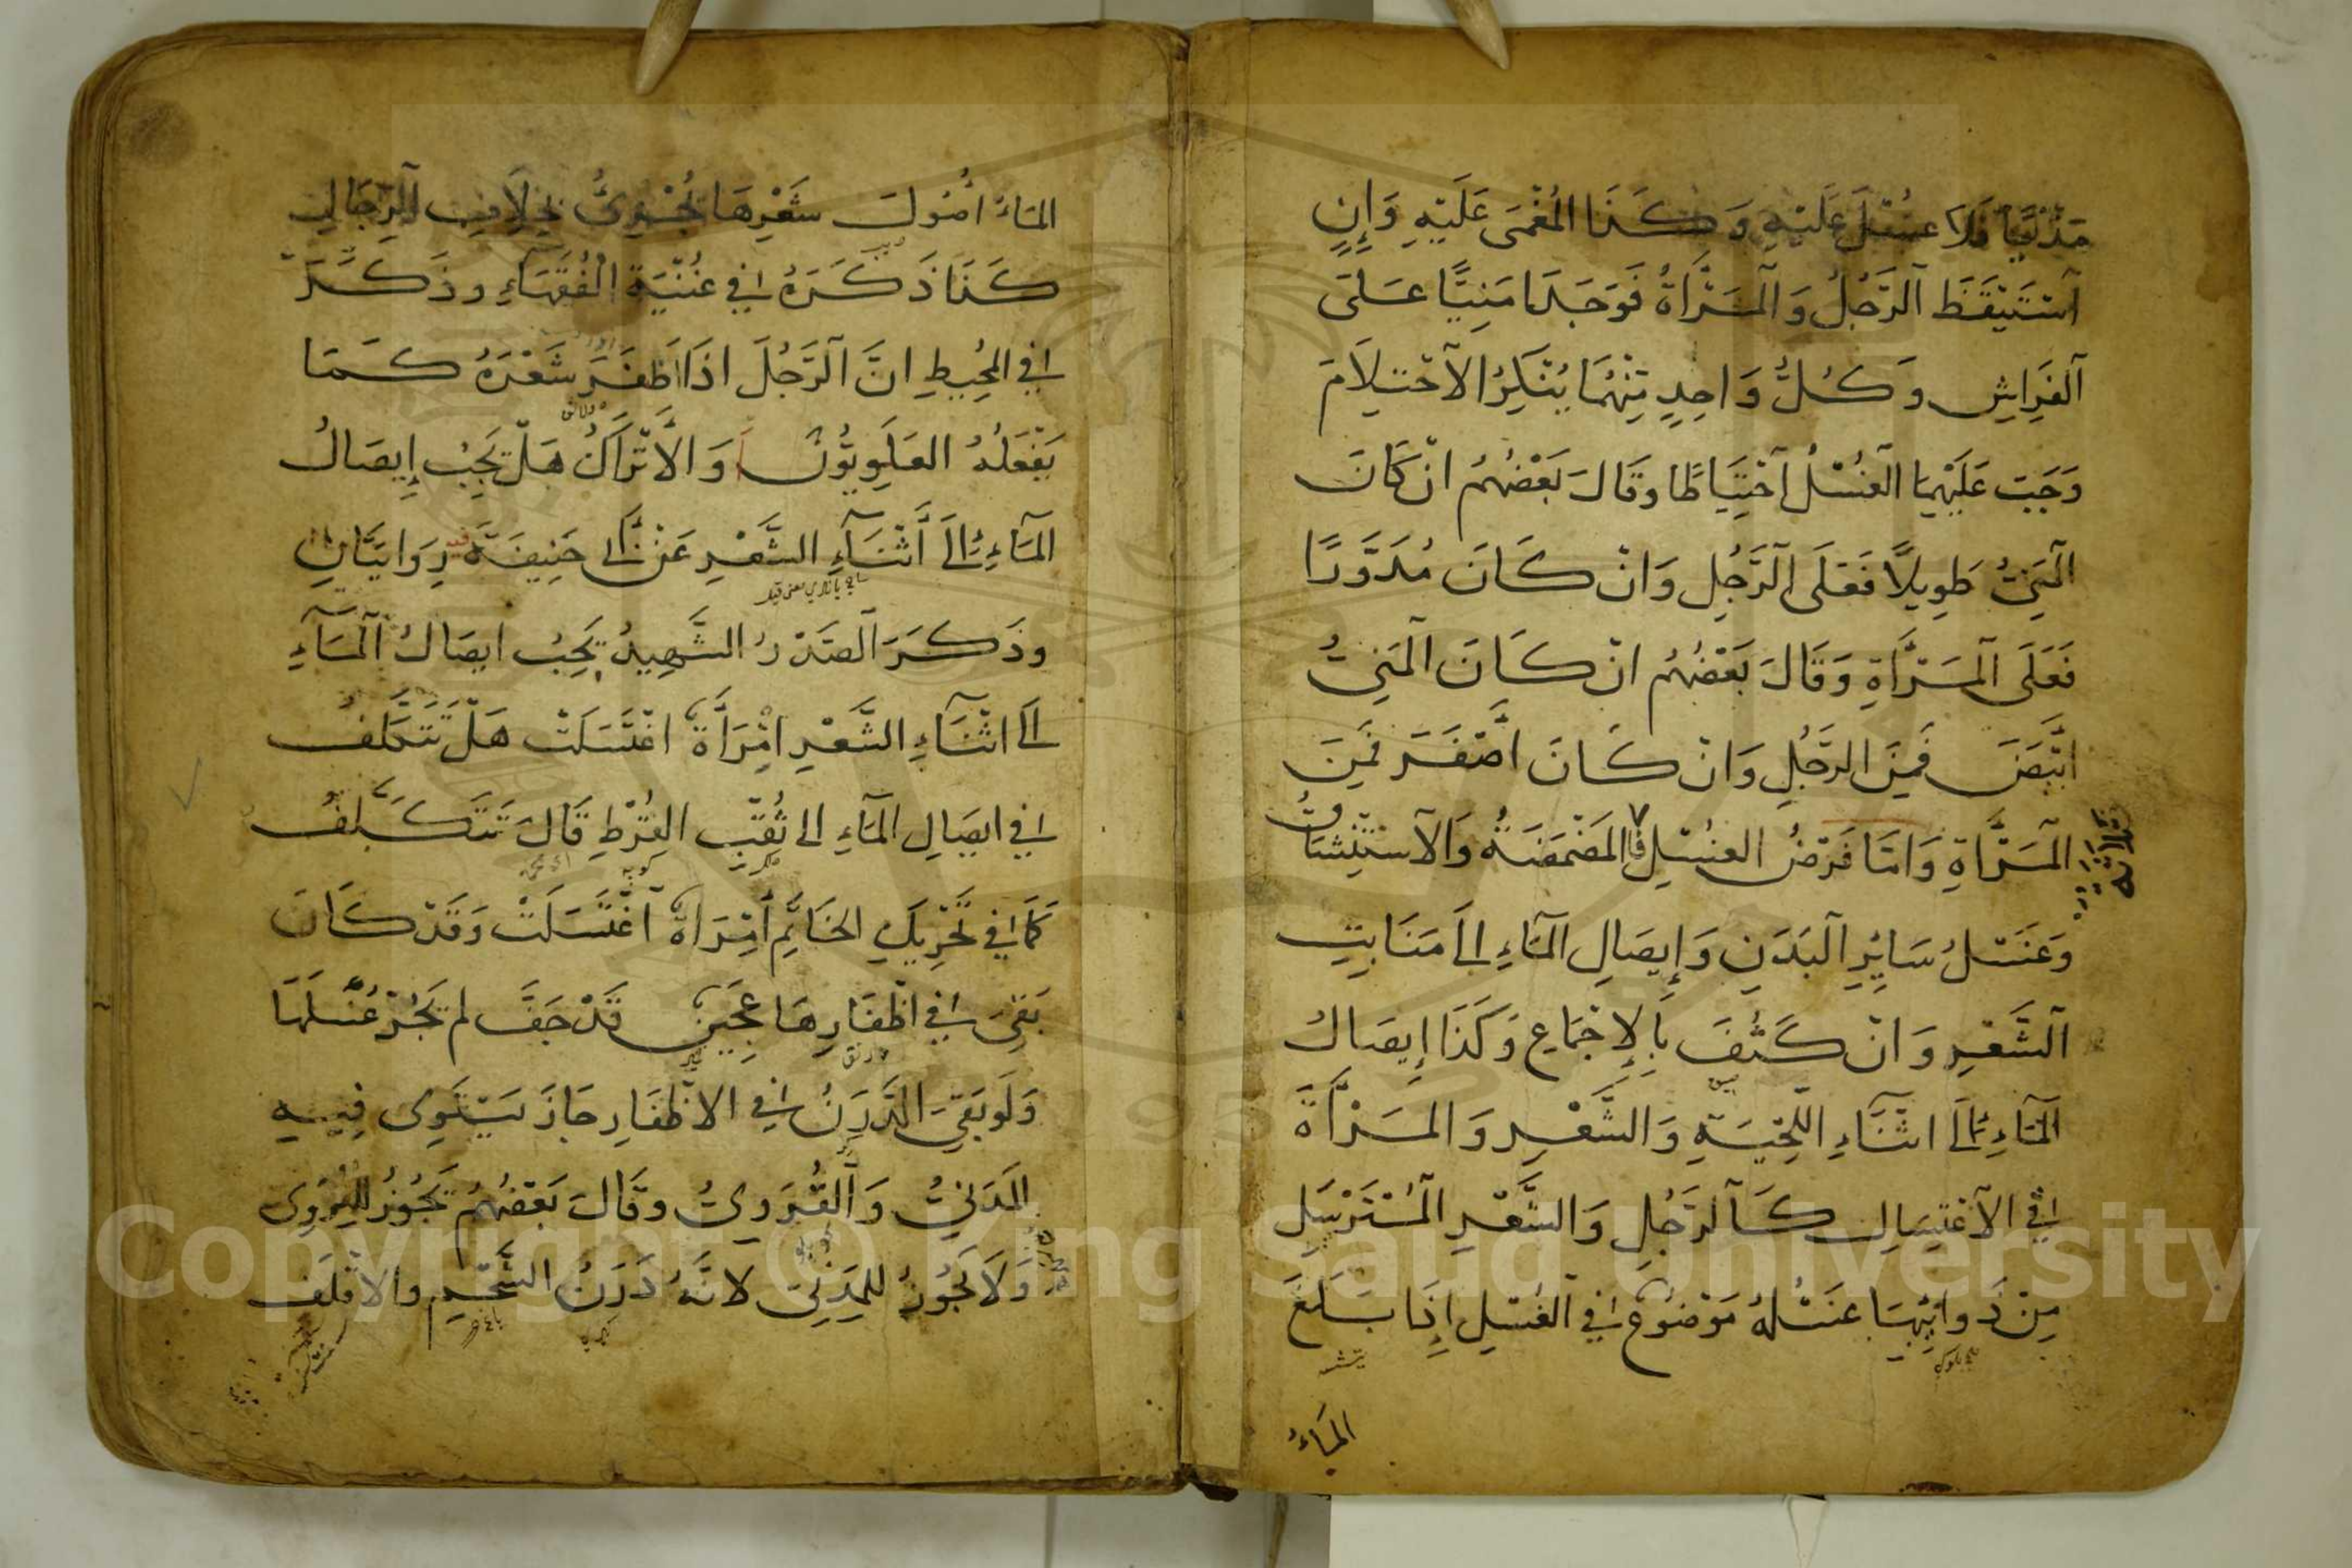 مَذْيًا فَلَا غُسْلَ عَلَيْهِ وَكَذَا المُغْمَى عَلَيْهِ وَإِنِ
اسْتَيْقَظَ الرَّجُلُ وَالْمَرْأَةُ فَوَجَدَا مَنِيًّا عَلَى
الفِرَاشِ وَكُلُّ وَاحِدٍ مِنْهُمَا يُنْكِرُ الاحْتِلَامَ
وَجَبَ عَلَيْهِمَا الْغُسْلُ احْتِيَاطًا وَقَالَ بَعْضُهُمْ انْ كَانَ
الْمَنِيُّ طَوِيلًا فَعَلَى الرَّجُلِ وَانْ كَانَ مُدَوَّرًا
فَعَلَى الْمَرْأَةِ وَقَالَ بَعْضُهُمْ انْ كَانَ الْمَنِيُّ
ابْيَضَ فَمِنَ الرَّجُلِ وَانْ كَانَ اصْفَرَ فَمِنَ
الْمَرْأَةِ وَامَّا فَرْضُ الغُسْلِ فَالْمَضْمَضَةُ وَالاسْتِنْشَاقُ
ثلاثة
وَغَسْلُ سَايِرِ الْبَدَنِ وَإِيصَالِ الْمَاءِ الَى مَنَابِتِ
الشَّعْرِ وَانْ كَثُفَ بِالإِجْمَاعِ وَكَذَا إِيصَالُ
الْمَاءِ الَى اثْنَاءِ اللِّحْيَةِ وَالشَّعْرِ وَالمَرْأَةُ
فِي الاغْتِسَالِ كَالرَّجُلِ وَالشَّعْرِ الْمُسْتَرْسِلِ
مِنْ ذَوَائِبِهَا غَسْلُهُ مَوْضُوعٌ فِي الْغُسْلِ إِذَا بَلَغَ
المَاءُ
المَاءُ اُصُولَ شَعْرِهَا يُجْزِئُ بِخِلَافِ الرِّجَالِ
كَذَا ذَكَرَهُ فِي غُنْيَةِ الْفُقَهَاءِ وذَكَرَ
فِي المُحِيطِ انَّ الرَّجُلَ اذَا اظْفَرَ شَعْرَهُ كَمَا
يَفْعَلُهُ العَلَوِيُّونَ وَالأَتْرَاكُ هَلْ يَجِبُ إِيصَالُ
الْمَاءِ الَى أَثْنَاءِ الشَّعْرِ عَنْ أَبِي حَنِيفَةَ رِوَايَتَانِ
وذَكَرَ الصَّدْرُ الشَّهِيدُ يَجِبُ ايصَالُ الْمَاءِ
الَى اثْنَاءِ الشَّعْرِ امْرَأَةٌ اغْتَسَلَتْ هَلْ تَتَكَلَّفُ
فِي ايصَالِ الْمَاءِ الى ثُقْبِ القُرْطِ قَالَ تَتَكَلَّفُ
كَمَا فِي تَحْرِيكِ الخَاتَمِ امْرَأَةٌ اغْتَسَلَتْ وَقَدْ كَانَ
بَقِيَ فِي اظْفَارِهَا عَجِينٌ قَدْ جَفَّ لم يَجُزْ غُسْلُهَا
وَلَو بَقِيَ الدَّرَنُ فِي الاظْفَارِ جَازَ يَسْتَوِي فِيهِ
المَدَنِيُّ وَالْقَرَوِيُّ وقَالَ بَعْضُهُمْ يَجُوزُ لِلْقَرَوِيِ
وَلَا يَجُوزُ لِلْمَدَنِيِّ لانَّهُ دَرَنُ الشَّحْمِ والاقْلَفُ
Copyright © King Saud University